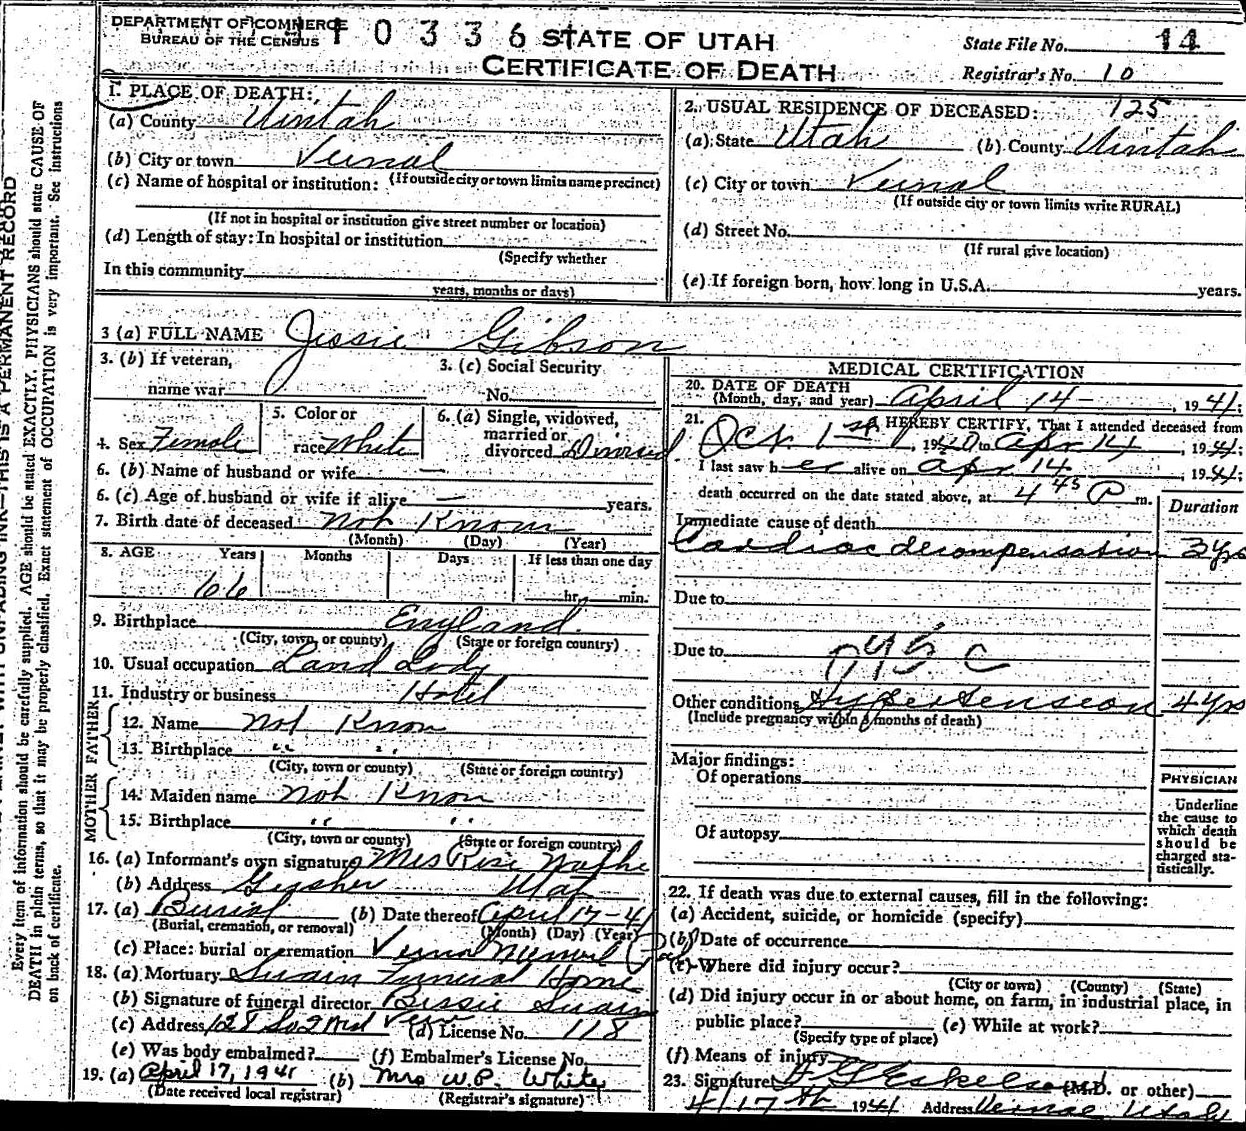 DEPARTMENT OF COMMERCE
BUREAU OF THE CENSUS
STATE OF UTAH
CERTIFICATE OF DEATH
State File No. 14
Registrar's No. 10
1. PLACE OF DEATH:
(a) County Uintah
(b) City or town Vernal
(If outside city or town limits name precinct)
(c) Name of hospital or institution:
(If not in hospital or institution give street number or location)
(d) Length of stay: In hospital or institution
(Specify whether
In this community
years, months or days)
2. USUAL RESIDENCE OF DECEASED: 125
(a) State Utah (b) County Uintah
(c) City or town Vernal
(If outside city or town limits write RURAL)
(d) Street No.
(If rural give location)
(e) If foreign born, how long in U.S.A. years.
3 (a) FULL NAME Jessie Gibson
3. (b) If veteran,
name war
3. (c) Social Security
No.
4. Sex Female
5. Color or
race White
6. (a) Single, widowed,
married or
divorced Divorced
6. (b) Name of husband or wife —
6. (c) Age of husband or wife if alive — years.
7. Birth date of deceased Not Known
(Month) (Day) (Year)
8. AGE Years Months Days If less than one day
66 hr. min.
9. Birthplace England
(City, town, or county) (State or foreign country)
10. Usual occupation Land Lady
11. Industry or business Hotel
FATHER
12. Name Not Know
13. Birthplace " "
(City, town or county) (State or foreign country)
MOTHER
14. Maiden name Not Know
15. Birthplace " "
(City, town or county) (State or foreign country)
16. (a) Informant's own signature Mrs
(b) Address Gusher Utah
17. (a) Burial (b) Date thereof April 17-41
(Burial, cremation, or removal) (Month) (Day) (Year)
(c) Place: burial or cremation Vernal
18. (a) Mortuary Swain Funeral Home
(b) Signature of funeral director Bessie Swain
(c) Address (d) License No. 118
(e) Was body embalmed? (f) Embalmer's License No.
19. (a) April 17, 1941 (b) Mrs W.P. White
(Date received local registrar) (Registrar's signature)
MEDICAL CERTIFICATION
20. DATE OF DEATH
(Month, day, and year) April 14 - , 1941;
21. I HEREBY CERTIFY, That I attended deceased from
Oct. 1st , 1940 to Apr 14 , 1941;
I last saw her alive on Apr 14 , 1941;
death occurred on the date stated above, at 4 45 P m.
Duration
Immediate cause of death
Cardiac decompensation 3 yrs
Due to
Due to
Other conditions Hypertension 4 yrs
(Include pregnancy within 3 months of death)
Major findings:
Of operations
Of autopsy
PHYSICIAN
Underline
the cause to
which death
should be
charged sta-
tistically.
22. If death was due to external causes, fill in the following:
(a) Accident, suicide, or homicide (specify)
(b) Date of occurrence
(c) Where did injury occur?
(City or town) (County) (State)
(d) Did injury occur in or about home, on farm, in industrial place, in
public place? (e) While at work?
(Specify type of place)
(f) Means of injury
23. Signature (M.D. or other)
4/17th 1941 Address Vernal Utah
THIS IS A PERMANENT RECORD
Every item of information should be carefully supplied. AGE should be stated EXACTLY. PHYSICIANS should state CAUSE OF
DEATH in plain terms, so that it may be properly classified. Exact statement of OCCUPATION is very important. See instructions
on back of certificate.